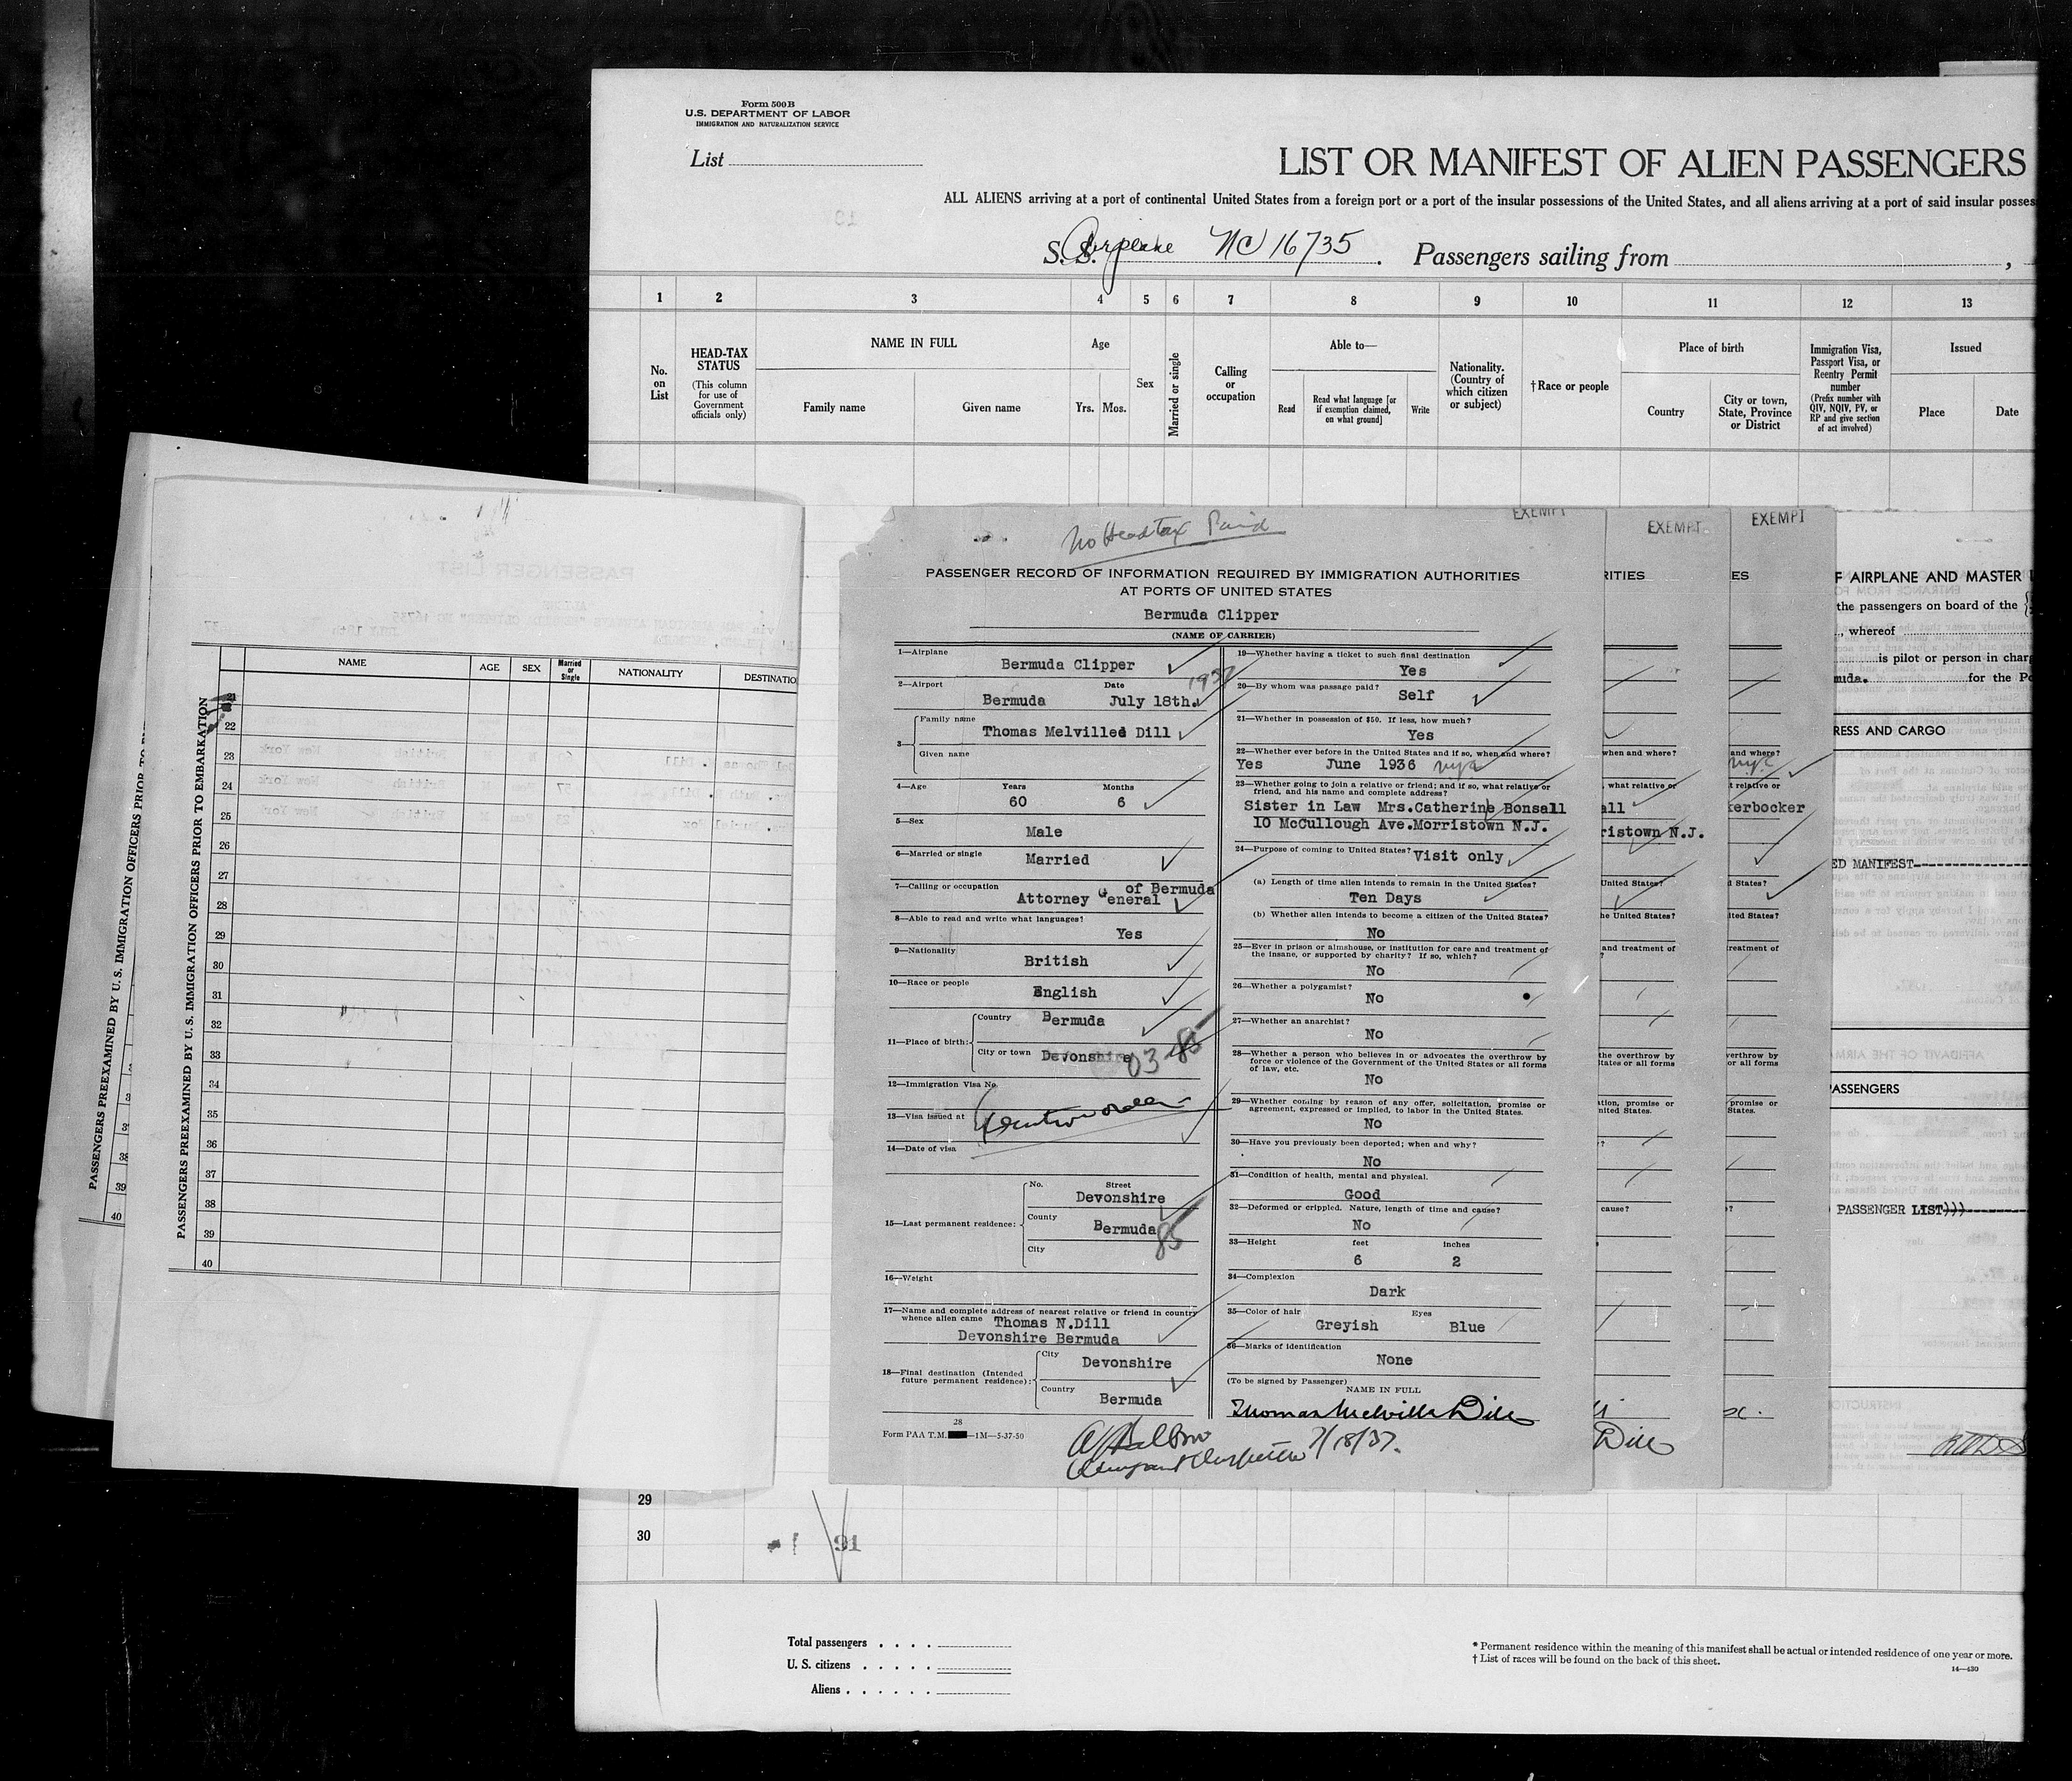 Form 500B
U.S. DEPARTMENT OF LABOR
IMMIGRATION AND NATURALIZATION SERVICE
List
LIST OR MANIFEST OF ALIEN PASSENGERS
ALL ALIENS arriving at a port of continental United States from a foreign port or a port of the insular possessions of the United States, and all aliens arriving at a port of said insular posses
S. S. Airplane NC 16735 . Passengers sailing from ,
1 2 3 4 5 6 7 8 9 10 11 12 13
No. on List
HEAD-TAX STATUS
(This column for use of Government officials only)
NAME IN FULL
Family name Given name
Age
Yrs. Mos.
Sex
Married or single
Calling or occupation
Able to—
Read
Read what language [or if exemption claimed, on what ground]
Write
Nationality. (Country of which citizen or subject)
†Race or people
Place of birth
Country
City or town, State, Province or District
Immigration Visa, Passport Visa, or Reentry Permit number
(Prefix number with QIV, NQIV, PV, or RP and give section of act involved)
Issued
Place Date
PASSENGERS PREEXAMINED BY U.S. IMMIGRATION OFFICERS PRIOR TO
39
40
PASSENGERS PREEXAMINED BY U.S. IMMIGRATION OFFICERS PRIOR TO EMBARKATION
NAME AGE SEX Married or Single NATIONALITY DESTINATIO
21
22
23
24
25
26
27
28
29
30
31
32
33
34
35
36
37
38
39
40
No Head Tax Paid
EXEMPT
PASSENGER RECORD OF INFORMATION REQUIRED BY IMMIGRATION AUTHORITIES
AT PORTS OF UNITED STATES
Bermuda Clipper
(NAME OF CARRIER)
1—Airplane Bermuda Clipper
2—Airport Date 1937
Bermuda July 18th.
3 Family name
Thomas Melville Dill
Given name
4—Age Years Months
60 6
5—Sex
Male
6—Married or single Married
7—Calling or occupation of Bermuda
Attorney General
8—Able to read and write what languages?
Yes
9—Nationality
British
10—Race or people
English
11—Place of birth: Country Bermuda
City or town Devonshire
03-85
12—Immigration Visa No.
13—Visa issued at
14—Date of visa
15—Last permanent residence: No. Street
Devonshire
County
Bermuda
85
City
16—Weight
17—Name and complete address of nearest relative or friend in country
whence alien came Thomas N.Dill
Devonshire Bermuda
18—Final destination (Intended future permanent residence): City
Devonshire
Country
Bermuda
28
Form PAA T.M. —1M—5-37-50
19—Whether having a ticket to such final destination
Yes
20—By whom was passage paid?
Self
21—Whether in possession of $50. If less, how much?
Yes
22—Whether ever before in the United States and if so, when and where?
Yes June 1936 nyc
23—Whether going to join a relative or friend; and if so, what relative or
friend, and his name and complete address?
Sister in Law Mrs.Catherine Bonsall
10 McCullough Ave.Morristown N.J.
24—Purpose of coming to United States? Visit only
(a) Length of time alien intends to remain in the United States?
Ten Days
(b) Whether alien intends to become a citizen of the United States?
No
25—Ever in prison or almshouse, or institution for care and treatment of
the insane, or supported by charity? If so, which?
No
26—Whether a polygamist?
No
27—Whether an anarchist?
No
28—Whether a person who believes in or advocates the overthrow by
force or violence of the Government of the United States or all forms
of law, etc.
No
29—Whether coming by reason of any offer, solicitation, promise or
agreement, expressed or implied, to labor in the United States.
No
30—Have you previously been deported; when and why?
No
31—Condition of health, mental and physical.
Good
32—Deformed or crippled. Nature, length of time and cause?
No
33—Height feet inches
6 2
34—Complexion
Dark
35—Color of hair Eyes
Greyish Blue
36—Marks of identification
None
(To be signed by Passenger)
NAME IN FULL
Thomas Melville Dill
7/18/37.
EXEMPT
RITIES
when and where?
, what relative or
all
ristown N.J.
United States?
he United States?
and treatment of
?
the overthrow by
tates or all forms
tion, promise or
nited States.
?
cause?
Dill
EXEMPT
ES
and where?
nyc
t relative or
kerbocker
d States?
ited States?
reatment of
verthrow by
or all forms
promise or
States.
?
F AIRPLANE AND MASTER
the passengers on board of the
, whereof
is pilot or person in charg
muda. for the Po
RESS AND CARGO
ED MANIFEST
ASSENGERS
PASSENGER LIST)))
29
30
91
Total passengers . . . .
U. S. citizens . . . . .
Aliens . . . . . .
* Permanent residence within the meaning of this manifest shall be actual or intended residence of one year or more.
† List of races will be found on the back of this sheet.
14—430